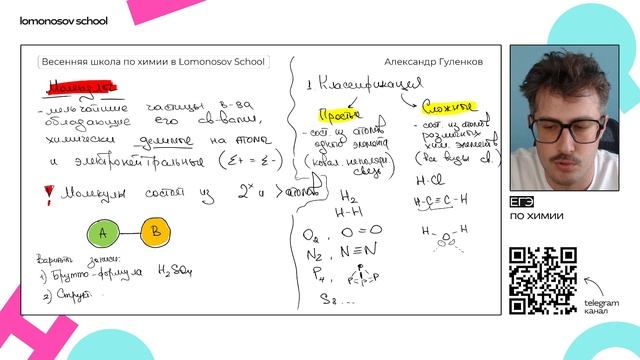 lomonosov school
Весенняя школа по химии в Lomonosov School
Александр Гуленков
Молекулы
- мельчайшие частицы в-ва
обладающие его св-вами,
химически делимые на атомы
и электронейтральные (Σ+ = Σ-)
! Молекулы состоят из 2х и > атомов
A B
Варианты записи:
1) Брутто-формула H2SO4
2) Структ
1 Классификация
Простые
- сост. из атомов
одного элемента
(ковал. неполярн
связь)
H2
H-H
O2, O=O
N2, N≡N
P4, P P P P
S8 ...
Сложные
- сост. из атомов
различных
хим. элементов
(все виды св.)
H-Cl
H-C≡C-H
H O H
ЕГЭ
ПО ХИМИИ
telegram
канал